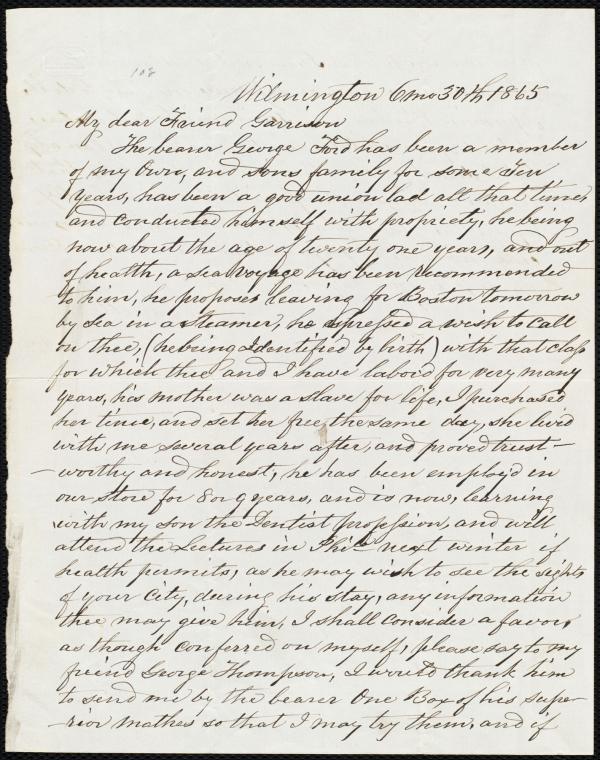 108
Wilmington 6mo 30th 1865
My dear Friend Garrison
The bearer George Ford has been a member
of my Own, and sons family for some Ten
years, has been a good union lad all that time,
and conducted himself with propriety, he being
now about the age of twenty one years, and out
of health, a sea voyage has been recommended
to him, he proposes leaving for Boston tomorrow
by sea in a steamer, he expressed a wish to call
on thee, (he being Identified by birth) with that class
for which thee and I have labord for very many
years, his mother was a slave for life, I purchased
her time, and set her free the same day, she lived
with me several years after, and proved trust-
-worthy and honest, he has been employd in
our Store for 8 or 9 years, and is now, learning
with my son the Dentist profession, and will
attend the Lectures in Phila next winter if
health permits, as he may wish to see the sights
of your City, during his stay, any information
thee may give him, I shall consider a favor,
as though conferred on myself, please say to my
friend George Thompson, I would thank him
to send me by the bearer One Box of his supe-
-rior mathes so that I may try them, and if